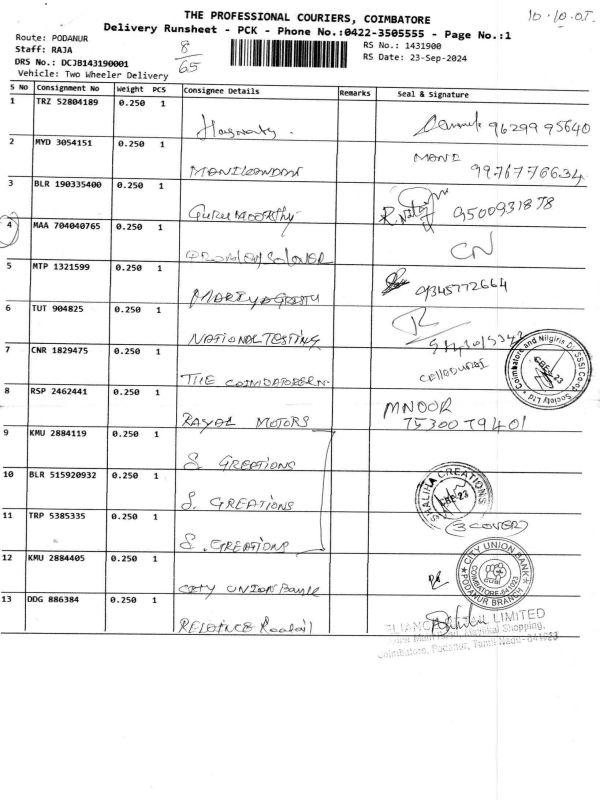 THE PROFESSIONAL COURIERS, COIMBATORE
Delivery Runsheet - PCK - Phone No.:0422-3505555 - Page No.:1
Route: PODANUR
Staff: RAJA
DRS No.: DCJB143190001
Vehicle: Two Wheeler Delivery
8/65
RS No.: 1431900
RS Date: 23-Sep-2024
S No Consignment No Weight PCS Consignee Details Remarks Seal & Signature
1 TRZ 52804189 0.250 1 9629995640
2 MYD 3054151 0.250 1 MANIKANDAN MANI 9976776634
3 BLR 190335400 0.250 1 Gurumoorthy 9500931878
4 MAA 704040765 0.250 1 CN
5 MTP 1321599 0.250 1 9345772664
6 TUT 904825 0.250 1 NATIONAL TESTING
7 CNR 1829475 0.250 1 THE CELLADURAI
8 RSP 2462441 0.250 1 RAYAL MOTORS MNOOR 7530079401
9 KMU 2884119 0.250 1 S. GREATIONS
10 BLR 515920932 0.250 1 S. GREATIONS SHALIHA CREATIONS
11 TRP 5385335 0.250 1 S. GREATIONS (3 COVER)
12 KMU 2884405 0.250 1 CITY UNION Bank CITY UNION BANK PODANUR BRANCH COIMBATORE-641023
13 DDG 886384 0.250 1 LIMITED
Shopping,
Coimbatore, Podanur, Tamil Nadu-641023